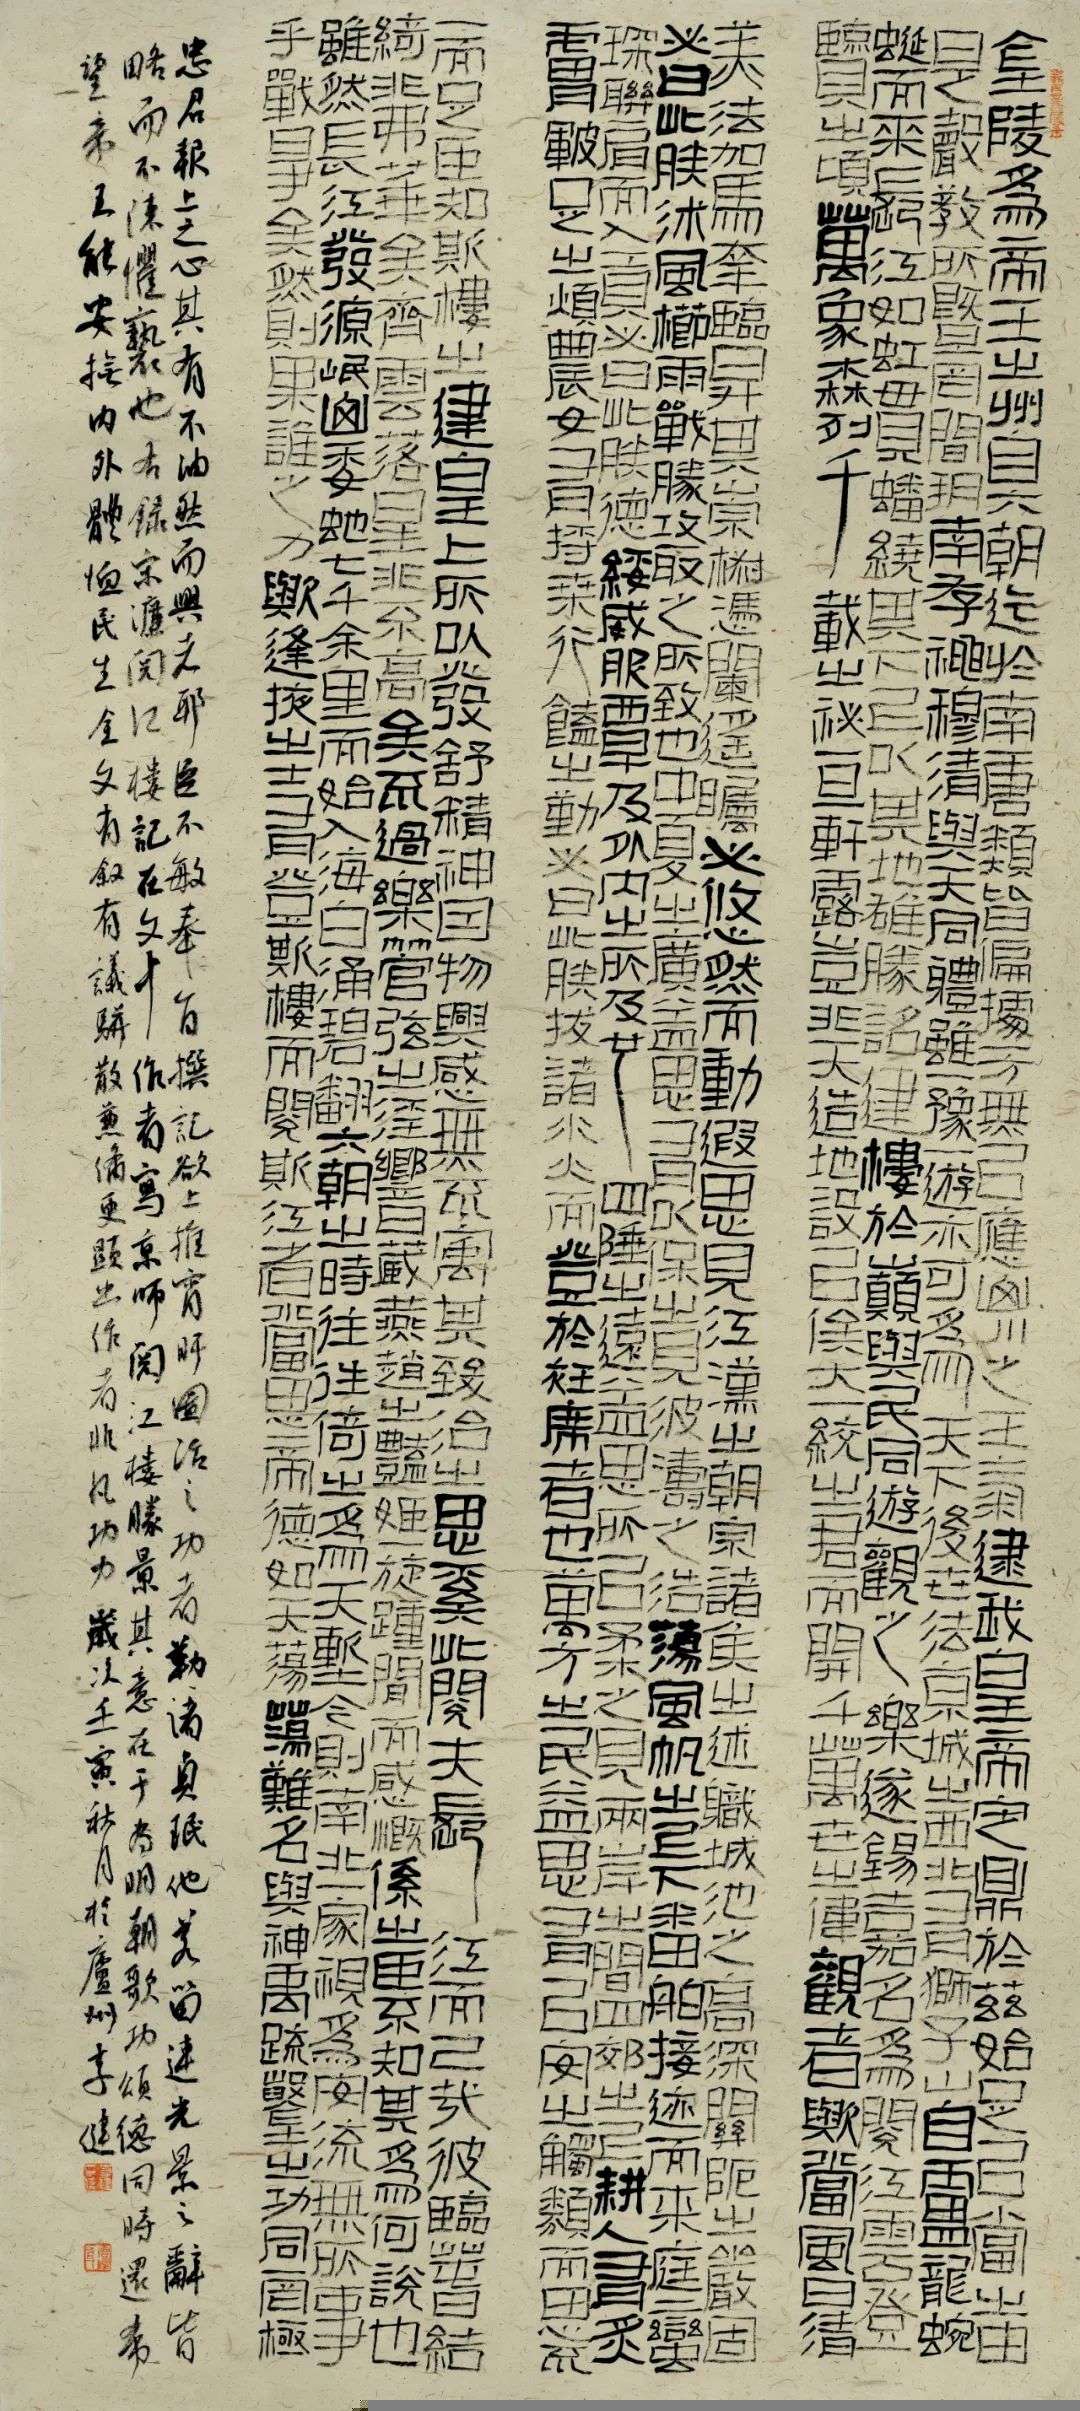 金陵為帝王之州自六朝迄於南唐類皆偏據一方無以應山川之王氣逮我皇帝定鼎於茲始足以當之由
是聲教所暨罔間朔南存神穆清與天同體雖一豫一遊亦可為天下後世法京城之西北有獅子山自盧龍蜿
蜒而來長江如虹貫蟠繞其下上以其地雄勝詔建樓於巔與民同遊觀之樂遂錫嘉名為閱江云登
覽之頃萬象森列千載之祕一旦軒露豈非天造地設以俟大一統之君而開千萬世之偉觀者歟當風日清
美法駕幸臨升其崇椒憑闌遙矚必悠然而動遐思見江漢之朝宗諸侯之述職城池之高深關阨之嚴固
必曰此朕沐風櫛雨戰勝攻取之所致也中夏之廣益思有以保之見波濤之浩蕩風帆之上下番舶接迹而來庭蠻
琛聯肩而入貢必曰此朕德綏威服覃及外內之所及也四陲之遠益思所以柔之見兩岸之間四郊之上耕人有炙
膚皸足之煩農女有捋桑行饁之勤必曰此朕拔諸水火而登於衽席者也萬方之民益思有以安之觸類而思不
一而足臣知斯樓之建皇上所以發舒精神因物興感無不寓其致治之思奚止閱夫長江而已哉彼臨春結
綺非弗華矣齊雲落星非不高矣不過樂管弦之淫響藏燕趙之豔姬一旋踵間而感慨係之臣不知其為何說也
雖然長江發源岷山委虵七千余里而始入海白涌碧翻六朝之時往往倚之為天塹今則南北一家視為安流無所事
乎戰爭矣然則果誰之力歟逢掖之士有登斯樓而閱斯江者當思帝德如天蕩蕩難名與神禹疏鑿之功同一罔極
忠君報上之心其有不油然而興者耶臣不敏奉旨撰記欲上推宵旰圖治之功者勒諸貞珉他若留連光景之辭皆
略而不陳懼褻也右錄宋濂閱江樓記在文中作者寫京師閱江樓勝景其意在于為明朝歌功頌德同時還希
望帝王能安撫內外體恤民生全文有敘有議駢散兼備更顯出作者非凡功力歲次壬寅秋月於廬州李健